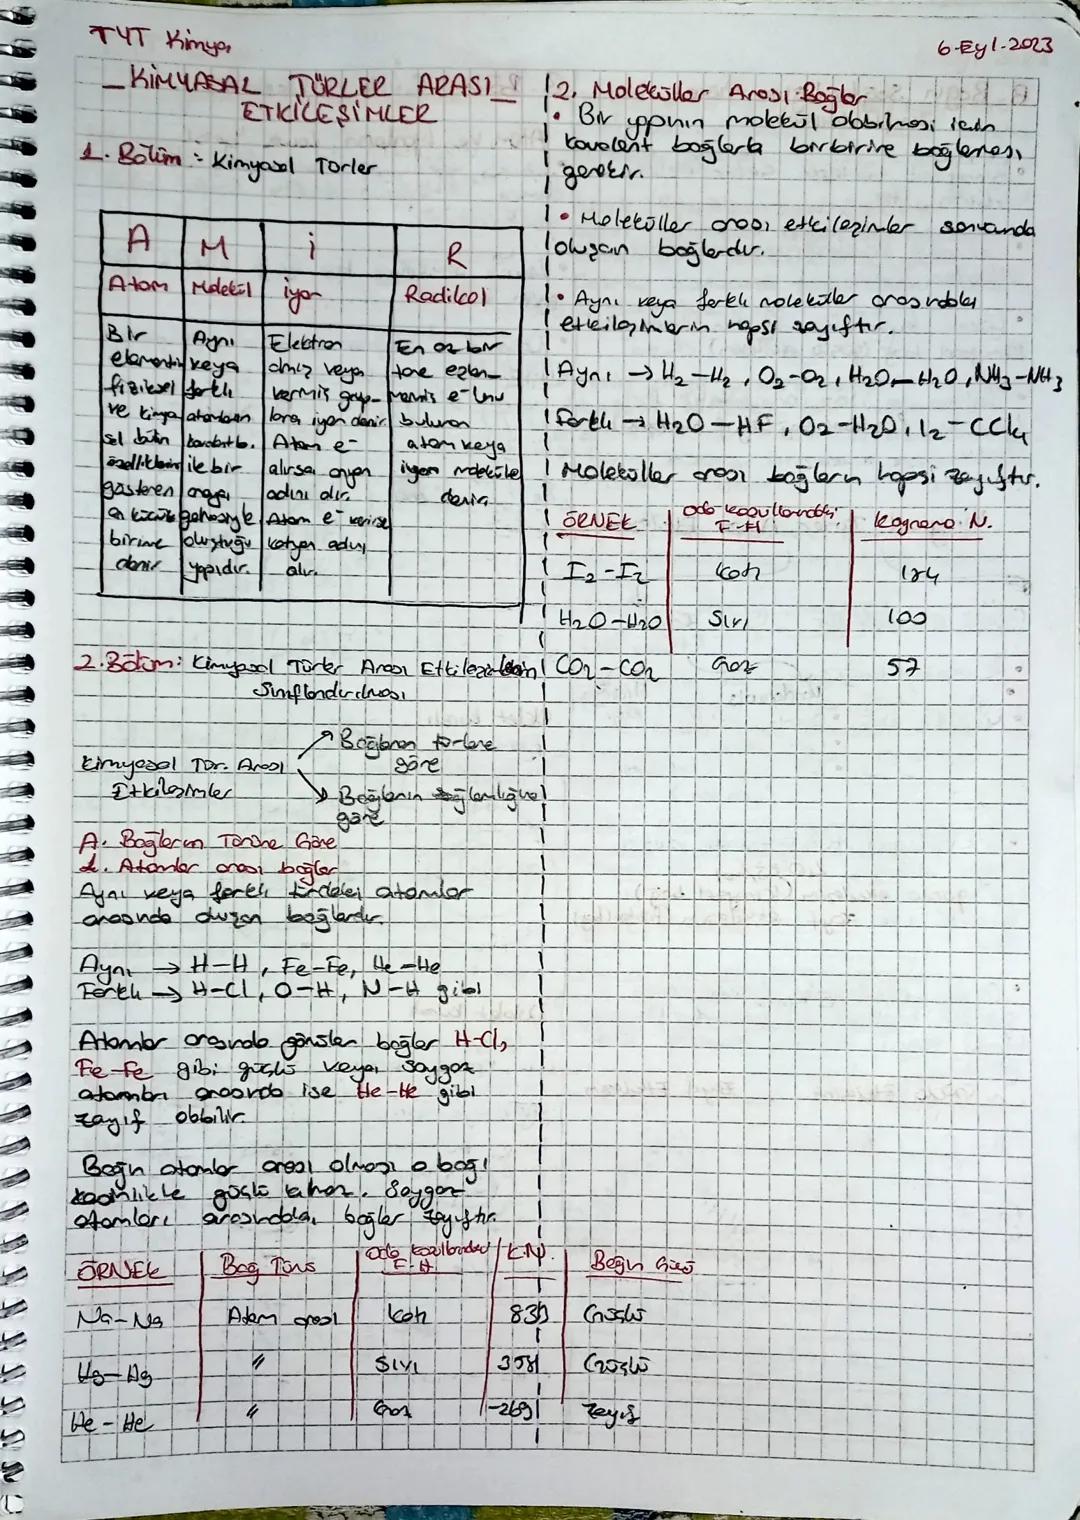 TYT Kimya
6-Eyl-2023
KİMYASAL TÜRLER ARASI
ETKİLEŞİMLER
1. Bölüm: Kimyasal Türler
A M i R
Atom Molekül iyon Radikal
Bir
elementin
fiziksel
ve kimya
sel bütün
özelliklerini
gösteren
en küçük
birime
denir
Aynı
veya
farklı
atomların
ile bir
araya
gelmesiyle
oluştuğu
yapıdır.
Elektron
almış veya
vermiş grup-
lara iyon denir
Atom e-
alırsa anyon
adını alır.
Atom e- verirse
katyon adını
alır.
En az bir
tane eşlen-
memiş e- unu
bulunan
atom veya
iyon moleküle
denir
2. Bölüm: Kimyasal Türler Arası Etkileşimlerin
Sınıflandırılması
Kimyasal Tür. Arası
Etkileşimler
Bağların türlerine
göre
Bağların sağlamlığına
göre
A. Bağların Türüne Göre
1. Atomlar arası bağlar
Aynı veya farklı türdeki atomlar
arasında oluşan bağlardır.
Aynı → H-H, Fe-Fe, He-He
Farklı → H-Cl, O-H, N-H gibi
Atomlar arasında görülen bağlar H-Cl,
Fe-Fe gibi güçlü veya soygaz
atomları arasında ise He-He gibi
zayıf olabilir.
Bağın atomlar arası olması o bağı
kesinlikle güçlü kılmaz. Soygaz
atomları arasındaki bağlar zayıftır.
ÖRNEK Bağ Türü Oda koşullarındaki F-H K.N. Bağın Gücü
Na-Na Atom arası Katı 883 Güçlü
Hg-Hg " Sıvı 358 Güçlü
He-He " Gaz -269 Zayıf
2. Moleküller Arası Bağlar
• Bir yapının molekül olabilmesi için
kovalent bağlarla birbirine bağlanması
gerekir.
• Moleküller arası etkileşimler sonucunda
oluşan bağlardır.
• Aynı veya farklı moleküller arasındaki
etkileşimlerin hepsi zayıftır.
Aynı → H2-H2, O2-O2, H2O-H2O, NH3-NH3
Farklı → H2O-HF, O2-H2O, I2-CCl4
Moleküller arası bağların hepsi zayıftır.
ÖRNEK Oda koşullarındaki F-H Kaynama N.
I2-I2 Katı 184
H2O-H2O Sıvı 100
CO2-CO2 Gaz 57